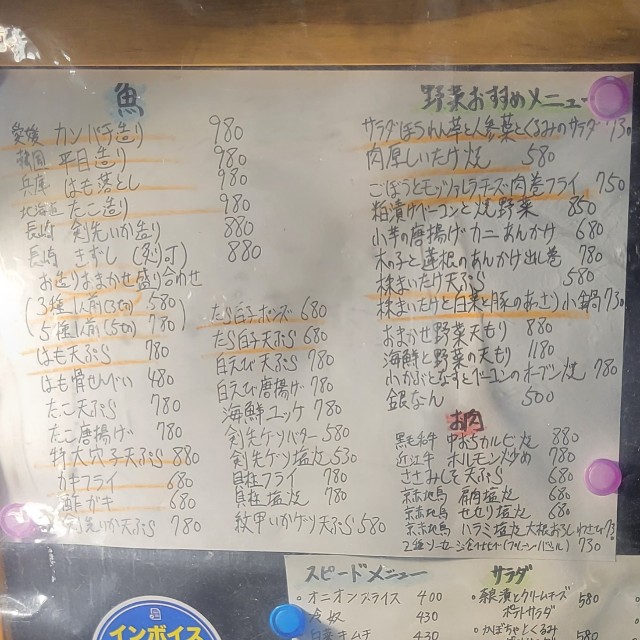 魚
愛媛 カンパチ造り 980
平目造り 980
兵庫 はも落とし 980
北海道 たこ造り 980
長崎 剣先いか造り 880
長崎 きずし (炙り可) 880
お造りおまかせ盛り合わせ
(3種1人前(3切) 580
5種1人前(5切) 780)
はも天ぷら 780
はも骨せんべい 480
たこ天ぷら 780
たこ唐揚げ 780
特大穴子天ぷら 880
カキフライ 680
酢ガキ 680
剣先いか天ぷら 780
たら白子ポンズ 680
たら白子天ぷら 680
白えび天ぷら 780
白えび唐揚げ 780
海鮮ユッケ 780
剣先ゲソバター 580
剣先ゲソ塩焼 530
貝柱フライ 780
貝柱塩焼 780
紋甲いかゲソ天ぷら 580
野菜おすすめメニュー
サラダほうれん草と人参葉とくるみのサラダ 730
肉厚しいたけ焼 580
ごぼうとモッツァレラチーズ肉巻フライ 750
粕漬けベーコンと焼野菜 850
小芋の唐揚げカニあんかけ 680
木の子と蓮根のあんかけ出し巻 780
株まいたけ天ぷら 580
株まいたけと白菜と豚のあっさり小鍋 730
おまかせ野菜天もり 880
海鮮と野菜の天もり 1180
小かぶとなすとベーコンのオーブン焼 780
銀なん 500
お肉
黒毛和牛 中おちカルビ焼 880
近江牛 ホルモン炒め 780
ささみしそ天ぷら 680
京赤地鳥 肩肉塩焼 680
京赤地鳥 せせり塩焼 680
京赤地鳥 ハラミ塩焼大根おろしわさび
2種ソーセージ 730
スピードメニュー
・オニオンスライス 400
430
白菜キムチ 430
サラダ
クリームチーズ
ポテトサラダ 580
・かぼちゃとくるみ
580
インボイス